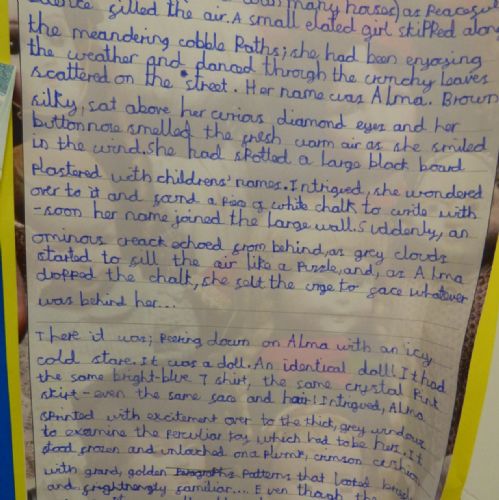 silence filled the air. A small elated girl skipped along
the meandering cobble Paths; she had been enjoying
the weather and danced through the crunchy leaves
scattered on the street. Her name was Alma. Brown
silky, sat above her curious diamond eyes and her
button nose smelled the fresh warm air as she smiled
in the wind. She had spotted a large black board
Plastered with childrens' names. Intrigued, she wondered
over to it and found a piece of white chalk to write with
- soon her name joined the large wall. Suddenly, an
ominous creack echoed from behind, as grey clouds
started to fill the air like a Puzzle, and, as Alma
dropped the chalk, she felt the urge to face whatever
was behind her...
There it was; Peering down on Alma with an icy
cold stare. It was a doll. An identical doll! It had
the same bright-blue T shirt, the same crystal Pink
skirt - even the same face and hair! Intrigued, Alma
sprinted with excitement over to the thick, grey window
to examine the Peculiar toy which had to be hers. It
stood frozen and on a Plump, crimson cushion
with grand, golden Patterns that looked
and frightengly familiar.... Even though the